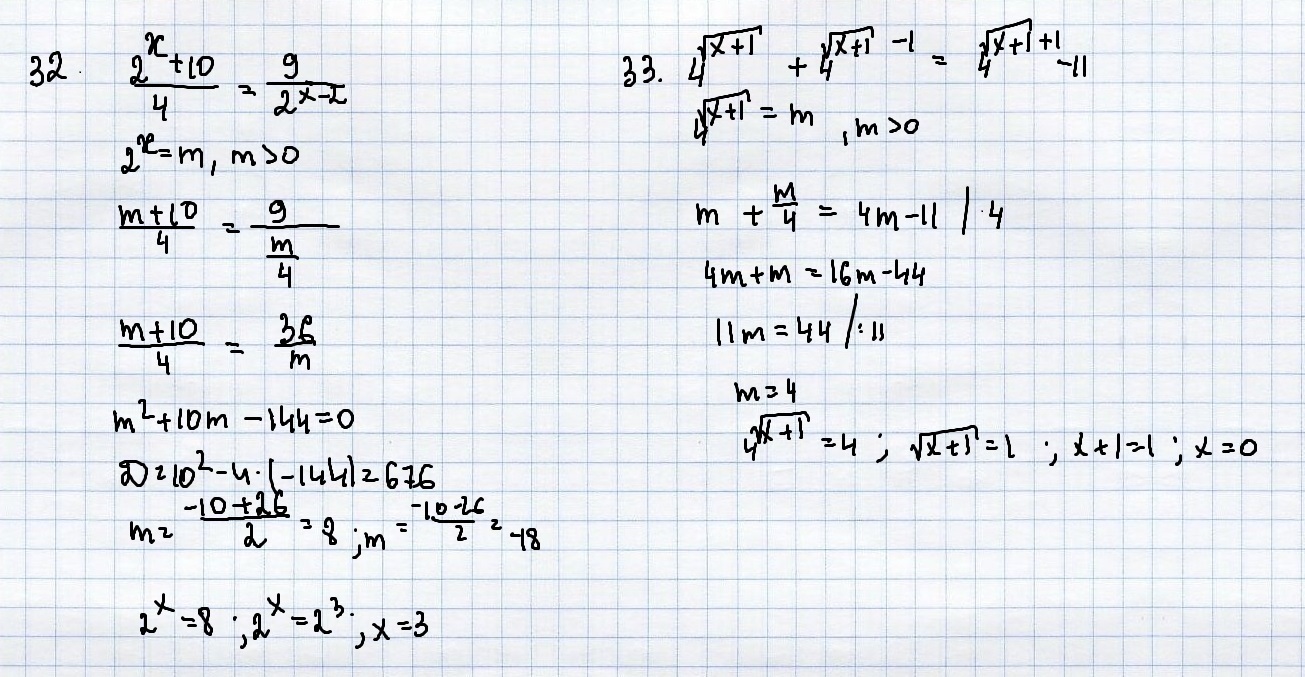 32. (2^x+10)/4 = 9/(2^(x-2))
2^x=m, m>0
(m+10)/4 = 9/(m/4)
(m+10)/4 = 36/m
m²+10m-144=0
D=10²-4·(-144)=676
m=(-10+26)/2=8; m=(-10-26)/2=-18
2^x=8; 2^x=2³; x=3
33. 4^(√(x+1)) + 4^(√(x+1)-1) = 4^(√(x+1)+1)-11
4^(√(x+1))=m, m>0
m + m/4 = 4m-11 /·4
4m+m=16m-44
11m=44 /:11
m=4
4^(√(x+1))=4; √(x+1)=1; x+1=1; x=0